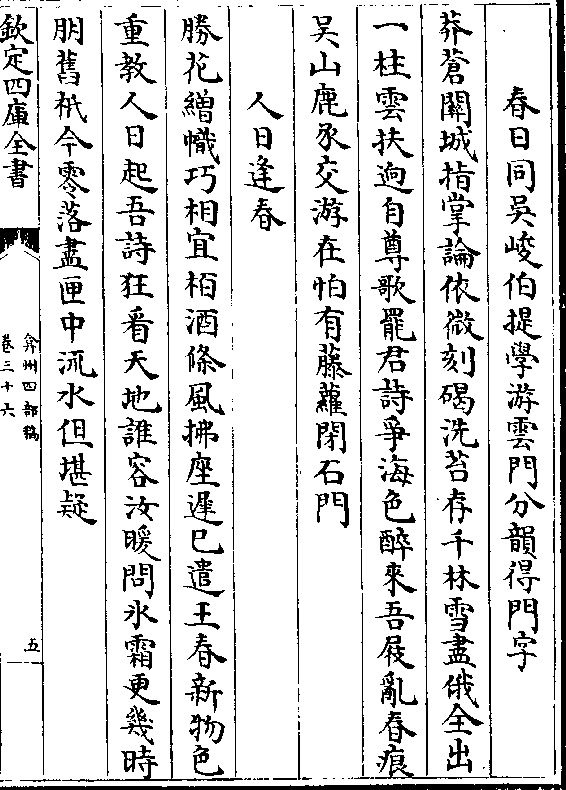 春日同吳峻伯提學游雲門分韻得門字
莽蒼關城指掌論依微刻碣洗苔存千林雪盡俄全出
一柱雲扶逈自尊歌罷君詩爭海色醉來吾屐亂春痕
吳山鹿豕交游在怕有藤蘿閉石門
人日逢春
勝花繒幟巧相宜栢酒條風拂座遲已遣王春新物色
重教人日起吾詩狂看天地誰容汝暖問氷霜更幾時
朋舊秪今零落盡匣中流水但堪疑
欽定四庫全書
弇州四部稿
卷三十六
五